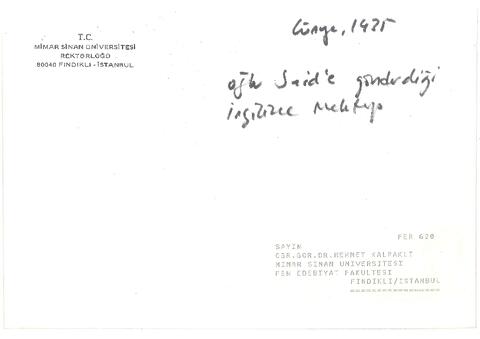 T.C.
MİMAR SİNAN ÜNİVERSİTESİ
REKTÖRLÜĞÜ
80040 FINDIKLI - İSTANBUL
Künye, 1925
oğlu Said'e gönderdiği
İngilizce Mektup
FER 620
SAYIN
ÖĞR.GÖR.DR.MEHMET KALPAKLI
MİMAR SİNAN ÜNİVERSİTESİ
FEN EDEBİYAT FAKÜLTESİ
FINDIKLI/İSTANBUL